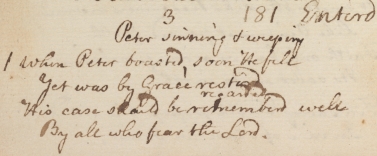 3 181 Enterd
Peter sinning & weeping
1 When Peter boasted, soon He fell
Yet was by Grace restord
regarded
His case should be rememberd well
By all who fear the Lord.